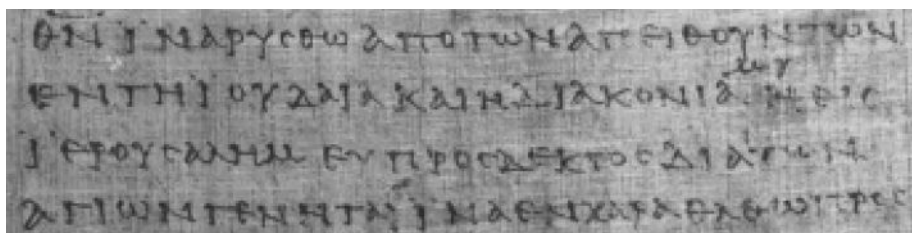 ΘΝ ΪΝΑΡΥCΘΩ ΑΠΟΤΩΝΑΠΕΙΘΟΥΝΤΩΝ
ΕΝΤΗΪΟΥΔΑΙΑΚΑΙΗΔΙΑΚΟΝΙΑ ΜΟΥ ΗΕΙC
ΪΕΡΟΥCΑΛΗΜ ΕΥΠΡΟCΔΕΚΤΟCΔΙΑΤΩΝ
ΑΓΙΩΝΓΕΝΗΤΑΙ ΪΝΑΕΝΧΑΡΑΕΛΘΩΠΡΟC